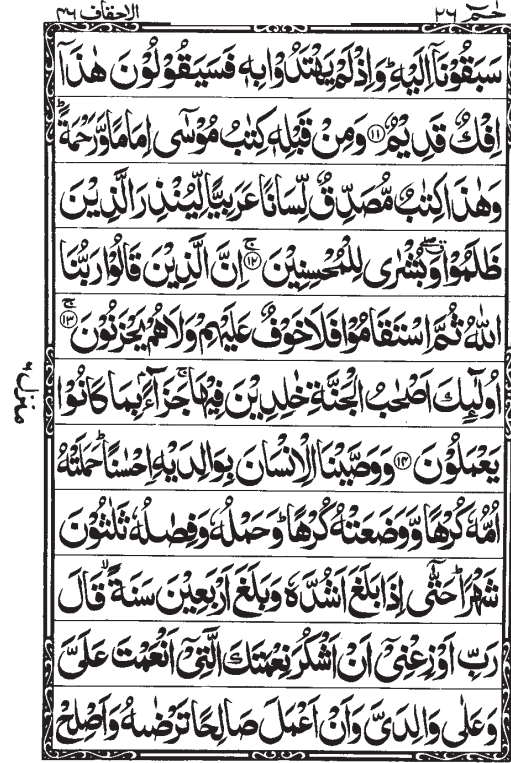 الاحقاف ٤٦
حٰمٓ ٢٦
سَبَقُوْنَاۤ اِلَيْهِ ؕ وَاِذْ لَمْ يَهْتَدُوْا بِهٖ فَسَيَقُوْلُوْنَ هٰذَاۤ
اِفْكٌ قَدِيْمٌ ﴿۱۱﴾ وَمِنْ قَبْلِهٖ كِتٰبُ مُوْسٰۤى اِمَامًا وَّرَحْمَةً ؕ
وَهٰذَا كِتٰبٌ مُّصَدِّقٌ لِّسَانًا عَرَبِيًّا لِّيُنْذِرَ الَّذِيْنَ
ظَلَمُوْا ۖۗ وَبُشْرٰى لِلْمُحْسِنِيْنَ ۚ﴿۱۲﴾ اِنَّ الَّذِيْنَ قَالُوْا رَبُّنَا
اللّٰهُ ثُمَّ اسْتَقَامُوْا فَلَا خَوْفٌ عَلَيْهِمْ وَلَا هُمْ يَحْزَنُوْنَ ۚ﴿۱۳﴾
اُولٰٓئِكَ اَصْحٰبُ الْجَنَّةِ خٰلِدِيْنَ فِيْهَا ۚ جَزَآءًۢ بِمَا كَانُوْا
يَعْمَلُوْنَ ﴿۱۴﴾ وَوَصَّيْنَا الْاِنْسَانَ بِوَالِدَيْهِ اِحْسٰنًا ؕ حَمَلَتْهُ
اُمُّهٗ كُرْهًا وَّوَضَعَتْهُ كُرْهًا ؕ وَحَمْلُهٗ وَفِصٰلُهٗ ثَلٰثُوْنَ
شَهْرًا ؕ حَتّٰۤى اِذَا بَلَغَ اَشُدَّهٗ وَبَلَغَ اَرْبَعِيْنَ سَنَةً ۙ قَالَ
رَبِّ اَوْزِعْنِيْۤ اَنْ اَشْكُرَ نِعْمَتَكَ الَّتِيْۤ اَنْعَمْتَ عَلَيَّ
وَعَلٰى وَالِدَيَّ وَاَنْ اَعْمَلَ صَالِحًا تَرْضٰىهُ وَاَصْلِحْ
منزل ٦